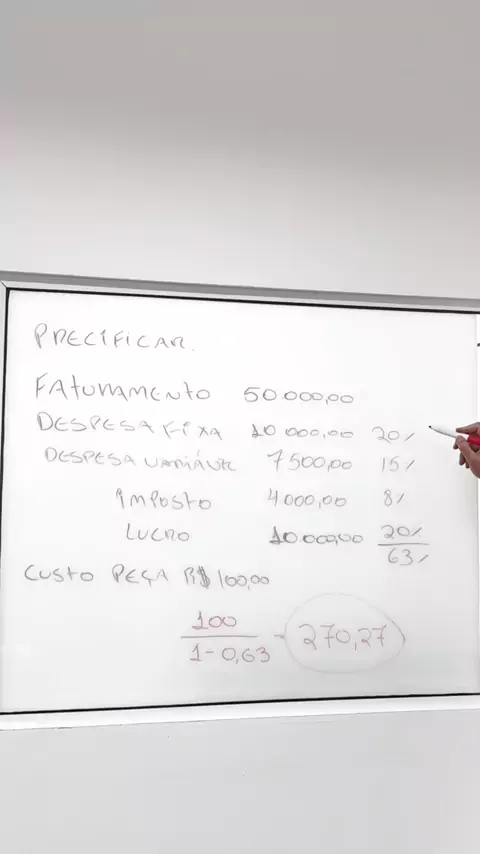 PRECIFICAR.
FATURAMENTO 50.000,00
DESPESA FIXA 10 000,00 20%
DESPESA VARIÁVEL 7500,00 15%
IMPOSTO 4000,00 8%
LUCRO 10.000,00 20%
63%
CUSTO PEÇA R$ 100,00
100
1-0,63 = 270,27